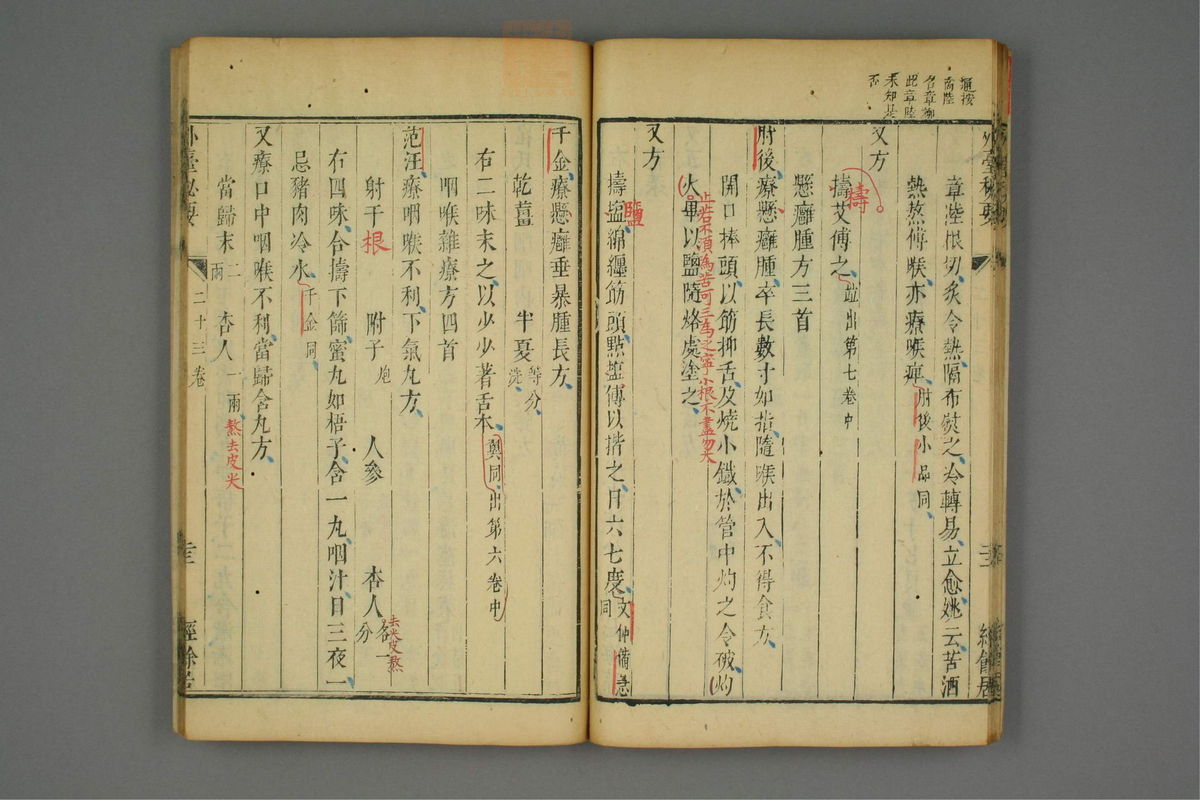 滬按
商陸
名章柳
此章陸
未知是
否
外臺秘要
章陸根切炙令熱隔布熨之冷轉易立愈姚云苦酒
熱熬傅㗋亦療㗋痺肘後小品同
又方
擣
擣艾傅之竝出第七卷中
懸癰腫方三首
肘後療懸癰腫卒長數寸如指隨㗋出入不得食方
開口捧頭以筋抑舌及燒小鐵於管中灼之令破灼
止若不頂為苦可三為之寧小根不盡勿大
火畢以鹽隨烙處塗之
又方
鹽
擣塩綿纏筋頭點塩傅以揩之日六七度文仲備急
同
經餘居
千金療懸癰垂暴腫長方
乾薑 半夏洗等分
右二味末之以少少著舌本與同出第六卷中
咽喉雜療方四首
范汪療咽㗋不利下氣丸方
射干根 附子炮 人參 杏人各一分
去尖皮熬
右四味合擣下篩蜜丸如梧子含一丸咽汁日三夜一
忌豬肉冷水千金同
又療口中咽㗋不利當歸含丸方
當歸末二兩 杏人一兩熬去皮尖
外臺秘要 二十三卷 經餘居